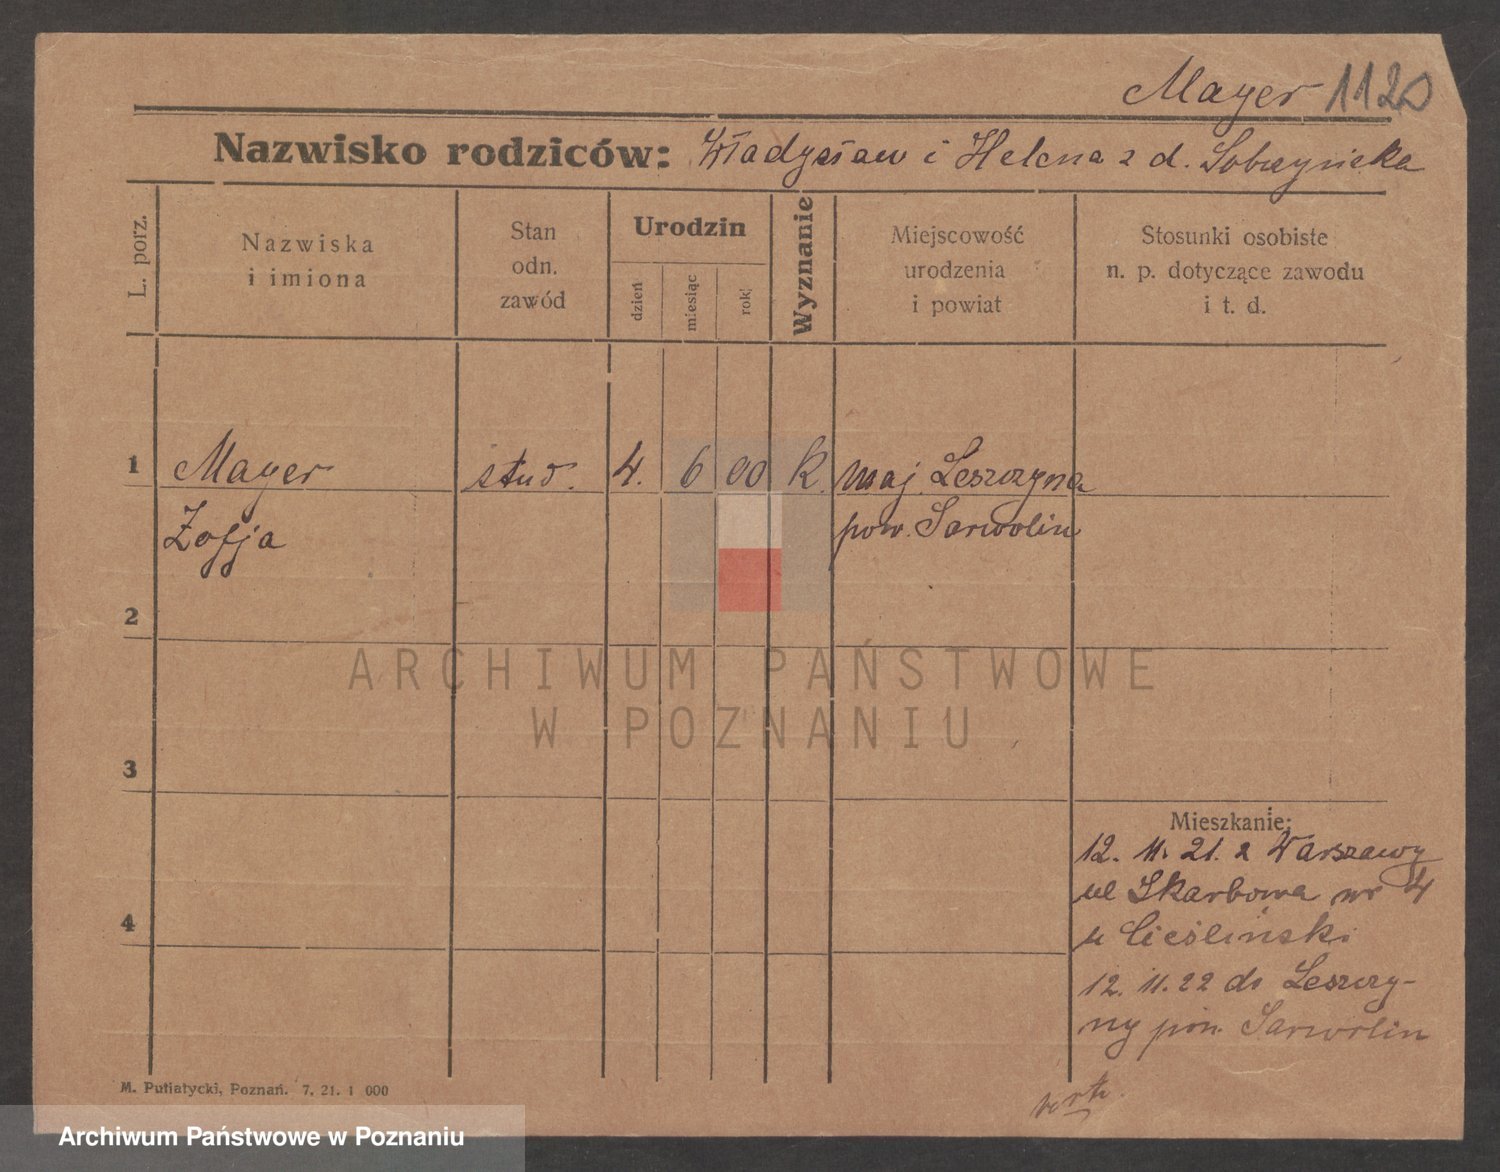 Mayer 1120
Nazwisko rodziców: Władysław i Helena z d. Sobczyńska
L. porz.
Nazwiska
i imiona
Stan
odn.
zawód
Urodzin
dzień
miesiąc
rok
Wyznanie
Miejscowość
urodzenia
i powiat
Stosunki osobiste
n. p. dotyczące zawodu
i t. d.
1 Mayer stud. 4. 6 00 k. maj. Leszczyna
Zofja pow. Garwolin
2
ARCHIWUM PAŃSTWOWE
W POZNANIU
3
Mieszkanie:
12. 11. 21. z Warszawy
ul Skarbowa nr 4
4
u Cieśliński
12. 11. 22 do Leszczy-
ny pow. Garwolin
M. Putiatycki, Poznań. 7. 21. 1 000
Archiwum Państwowe w Poznaniu